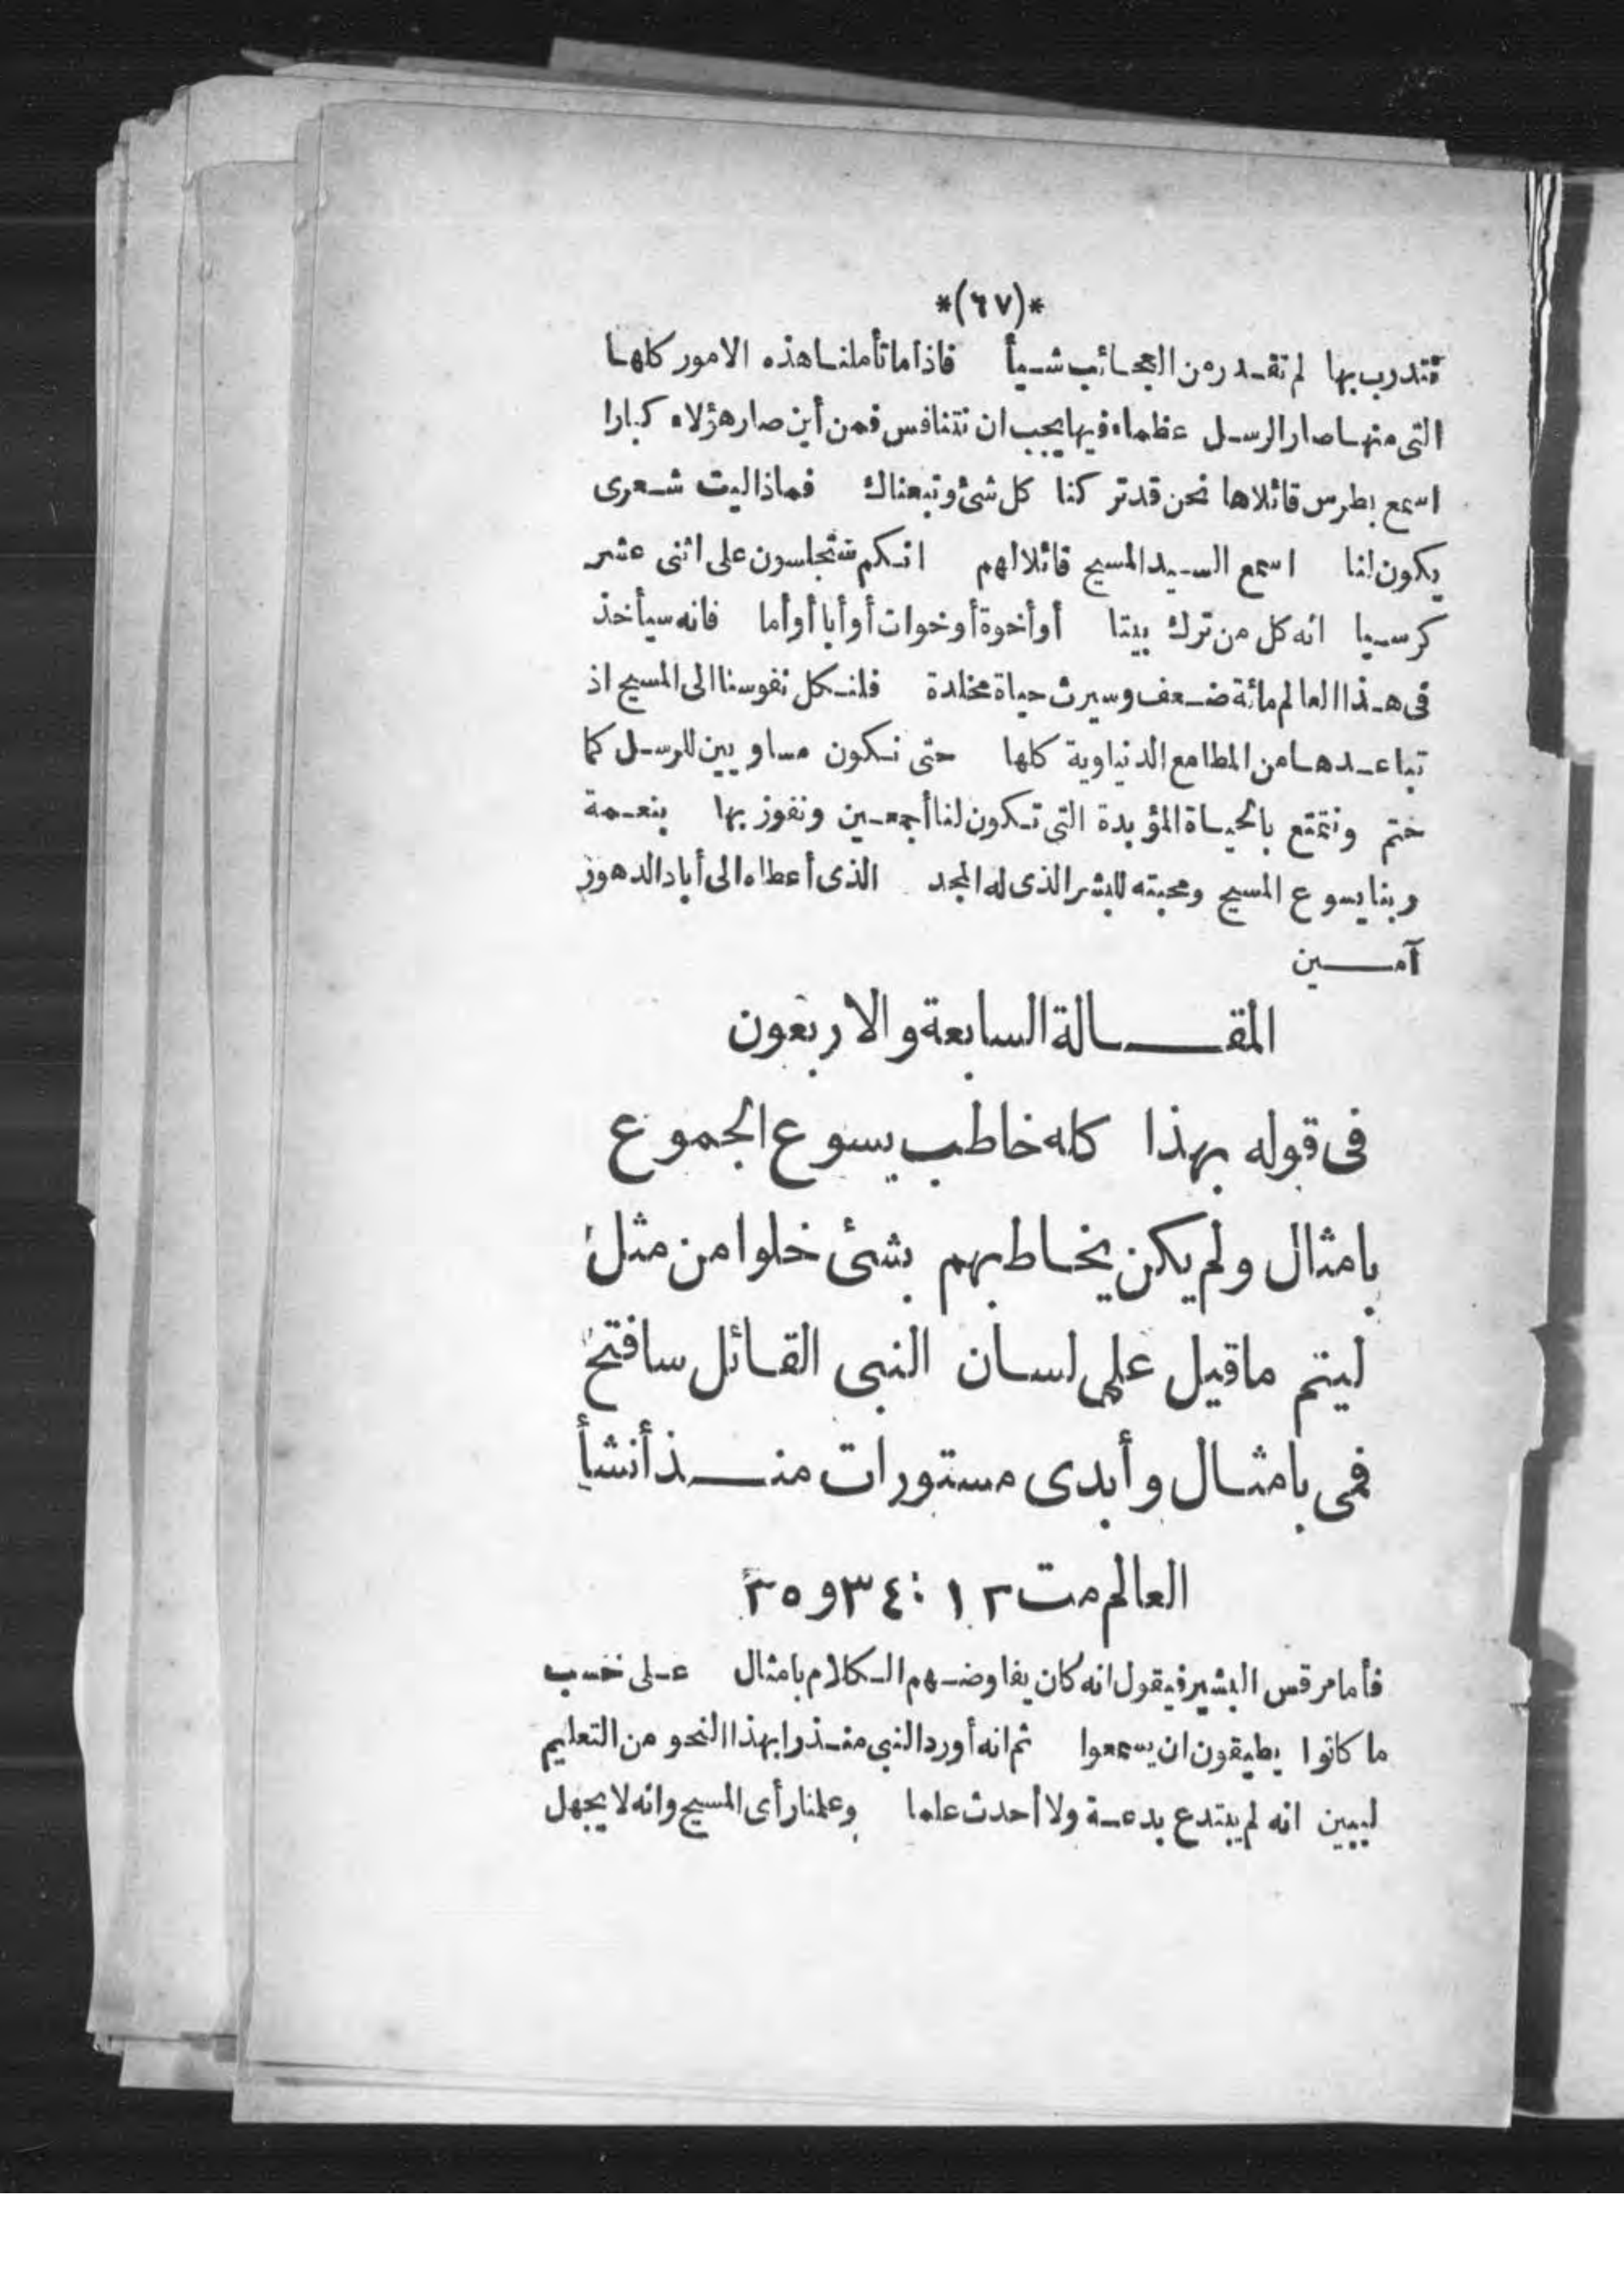 *(٦٧)*
تتدرب بها لم تقدر من العجائب شيأ فاذا ما تأملنا هذه الامور كلها
التى منها صار الرسل عظماء فيها يجب ان نتنافس فمن أين صار هؤلاء كبارا
اسمع بطرس قائلا ها نحن قد تركنا كل شئ وتبعناك فماذا ليت شعرى
يكون لنا اسمع السيد المسيح قائلا لهم انكم ستجلسون على اثنى عشر
كرسيا انه كل من ترك بيتا أو أخوة أو خوات أو أبا أو أما فانه سيأخذ
فى هذا العالم مائة ضعف وسيرث حياة مخلدة فلنكل نفوسنا الى المسيح اذ
تباعدها من المطامع الدنياوية كلها حتى نكون مساويين للرسل كما
ختم ونتمتع بالحياة المؤبدة التى تكون لنا أجمعين ونفوز بها بنعمة
ربنا يسوع المسيح ومحبته للبشر الذى له المجد الذى أعطاه الى أباد الدهور
آمين
المقالة السابعة والاربعون
فى قوله بهذا كله خاطب يسوع الجموع
بامثال ولم يكن يخاطبهم بشئ خلوا من مثل
ليتم ماقيل على لسان النبى القائل سافتح
فمى بامثال وأبدى مستورات منذ أنشأ
العالم مت ١٣ : ٣٤ و ٣٥
فأما مرقس البشير فيقول انه كان يفاوضهم الكلام بامثال على حسب
ما كانوا يطيقون ان يسمعوا ثم انه أورد النبى منذرا بهذا النحو من التعليم
ليبين انه لم يبتدع بدعة ولا أحدث علما وعلمنا رأى المسيح وانه لا يجهل